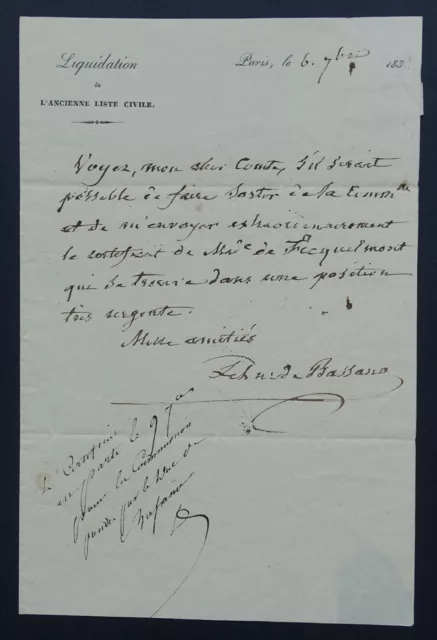 Liquidation
de
L'ANCIENNE LISTE CIVILE.
Paris, le 6. 7bre 183
Voyez, mon cher Comte, s'il serait
possible de faire sortir de la Comm.on
et de m'envoyer extraordinairement
le certificat de Mde de Ficquelmont
qui se trouve dans une position
très urgente.
Mille amitiés
Le duc de Bassano
le Certificat
est parti le 9 7bre
pour la Commission
par le Duc de
Bassano